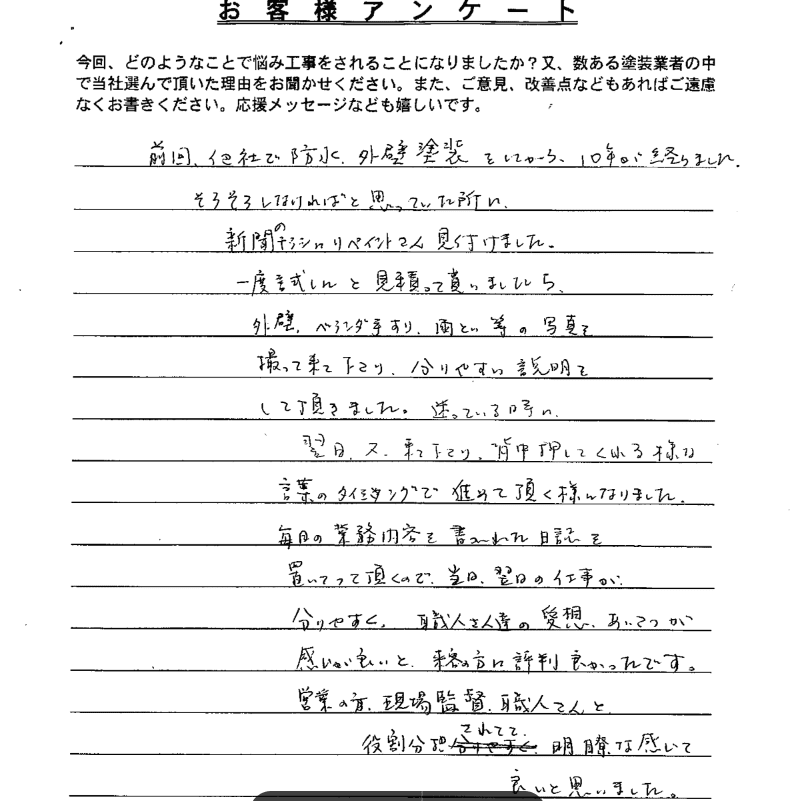 お客様アンケート
今回、どのようなことで悩み工事をされることになりましたか？又、数ある塗装業者の中
で当社選んで頂いた理由をお聞かせください。また、ご意見、改善点などもあればご遠慮
なくお書きください。応援メッセージなども嬉しいです。
前回、他社で防水、外壁塗装をしてから、10年が経ちました。
そろそろしなければと思っていた所に、
新聞のチラシにリペイントさん見付けました。
一度試しにと見積って貰いましたら、
外壁、ベランダ手すり、雨とい等の写真を
撮って来て下さり、分りやすい説明を
して頂きました。迷っている時に、
翌日、又、来て下さり、背中押してくれる様な
言葉のタイミングで進めて頂く様になりました。
毎日の業務内容を書かれた日誌を
置いてって頂くので、当日、翌日の仕事が、
分りやすく、職人さん達の愛想、あいさつが
感じが良いと、来客の方に評判良かったです。
営業の方、現場監督、職人さんと、
役割分担されてて、明瞭な感じで
良いと思いました。